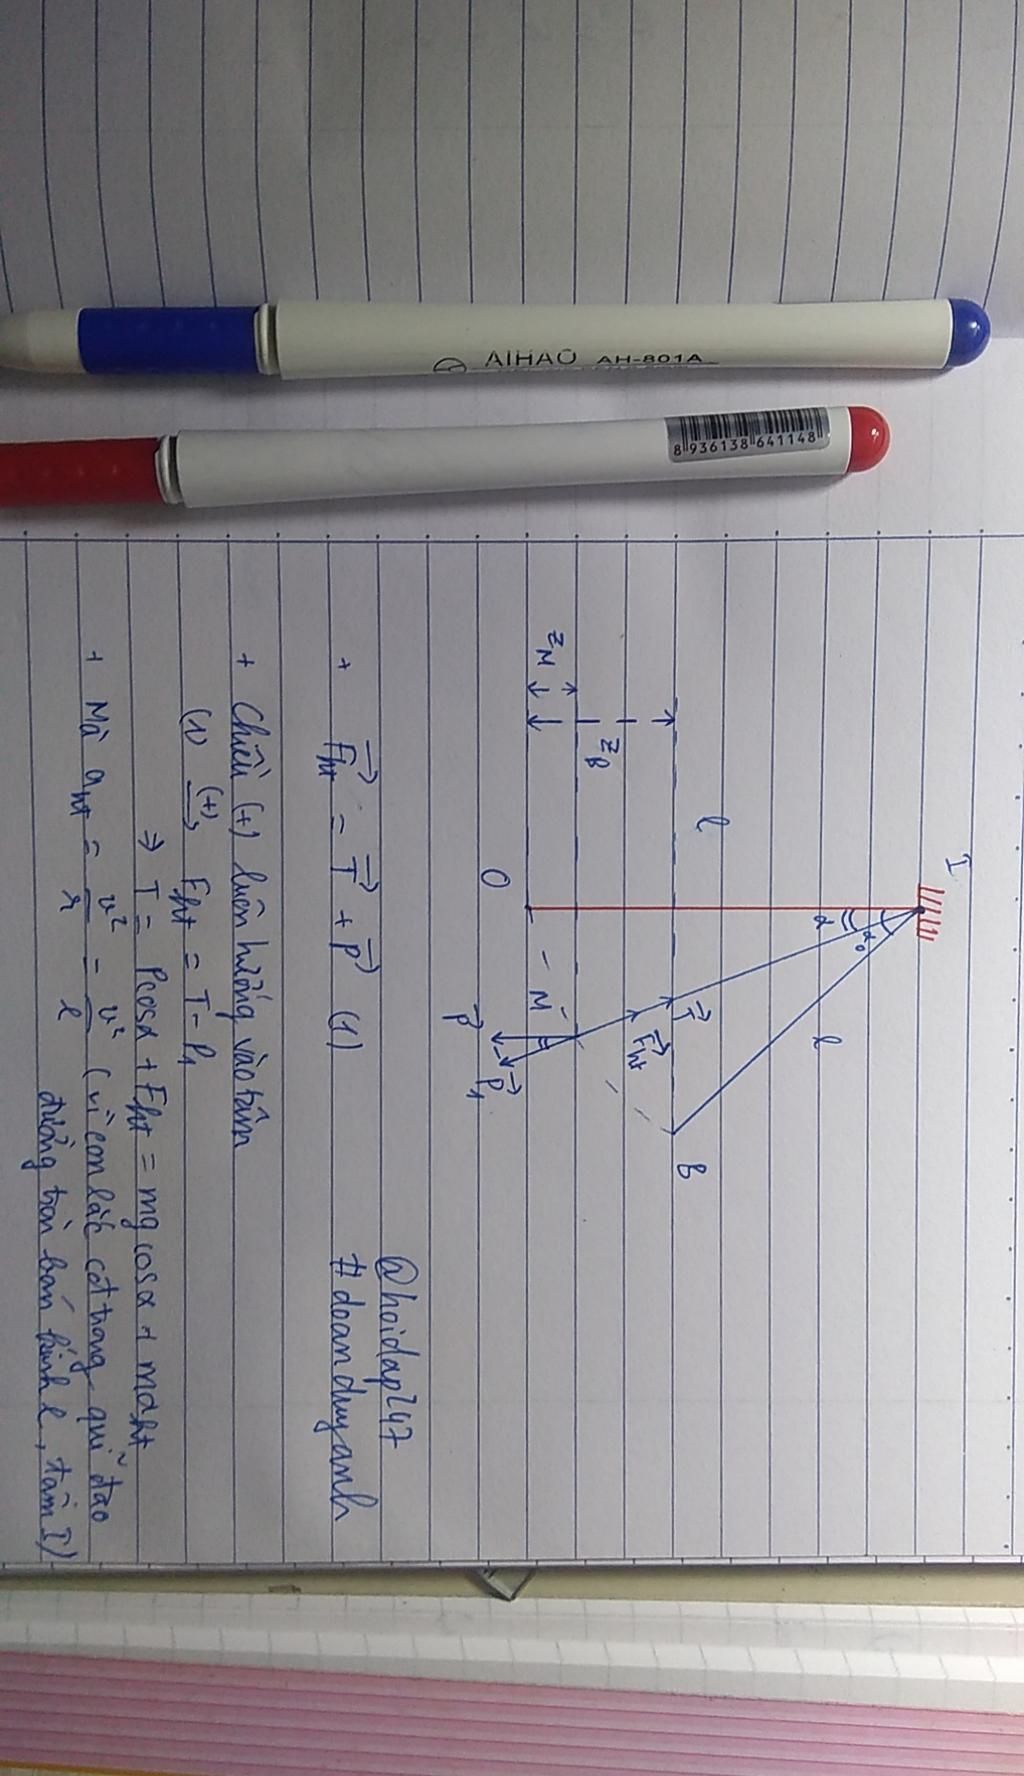 AIHAO AH-801A
8 936138 641148
I
α₀
α
l
l
z_B
z_M
T⃗
F⃗ht
B
O
M
P⃗
P⃗₁
@hoidap247
#doanduyanh
+ F⃗ht = T⃗ + P⃗ (1)
+ Chiều (+) luôn hướng vào tâm
(1) (+)→ Fht = T - P₁
⇒ T = Pcosα + Fht = mg cosα + maht
+ Mà aht = v²/r = v²/l (vì con lắc có trong quĩ đạo
đường tròn bán kính l, tâm I)